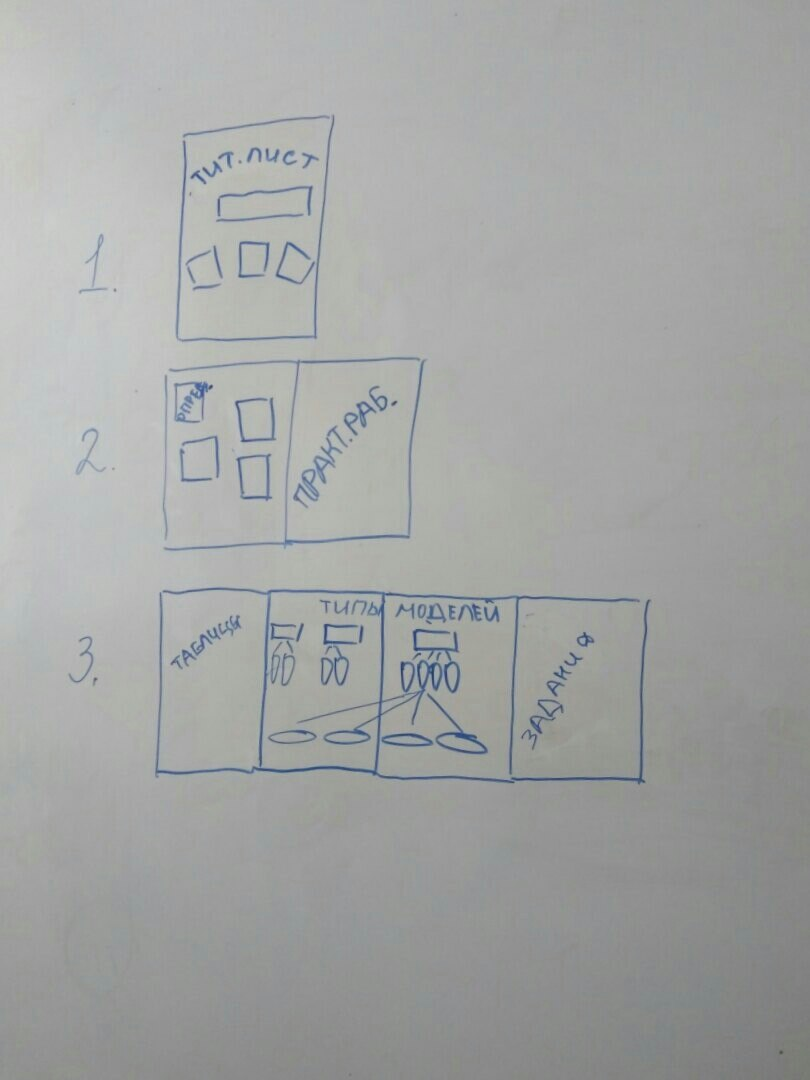 1.
ТИТ. ЛИСТ
2.
ОПРЕД.
ПРАКТ. РАБ.
3.
ТАБЛИЦЫ
ТИПЫ МОДЕЛЕЙ
ЗАДАНИЯ